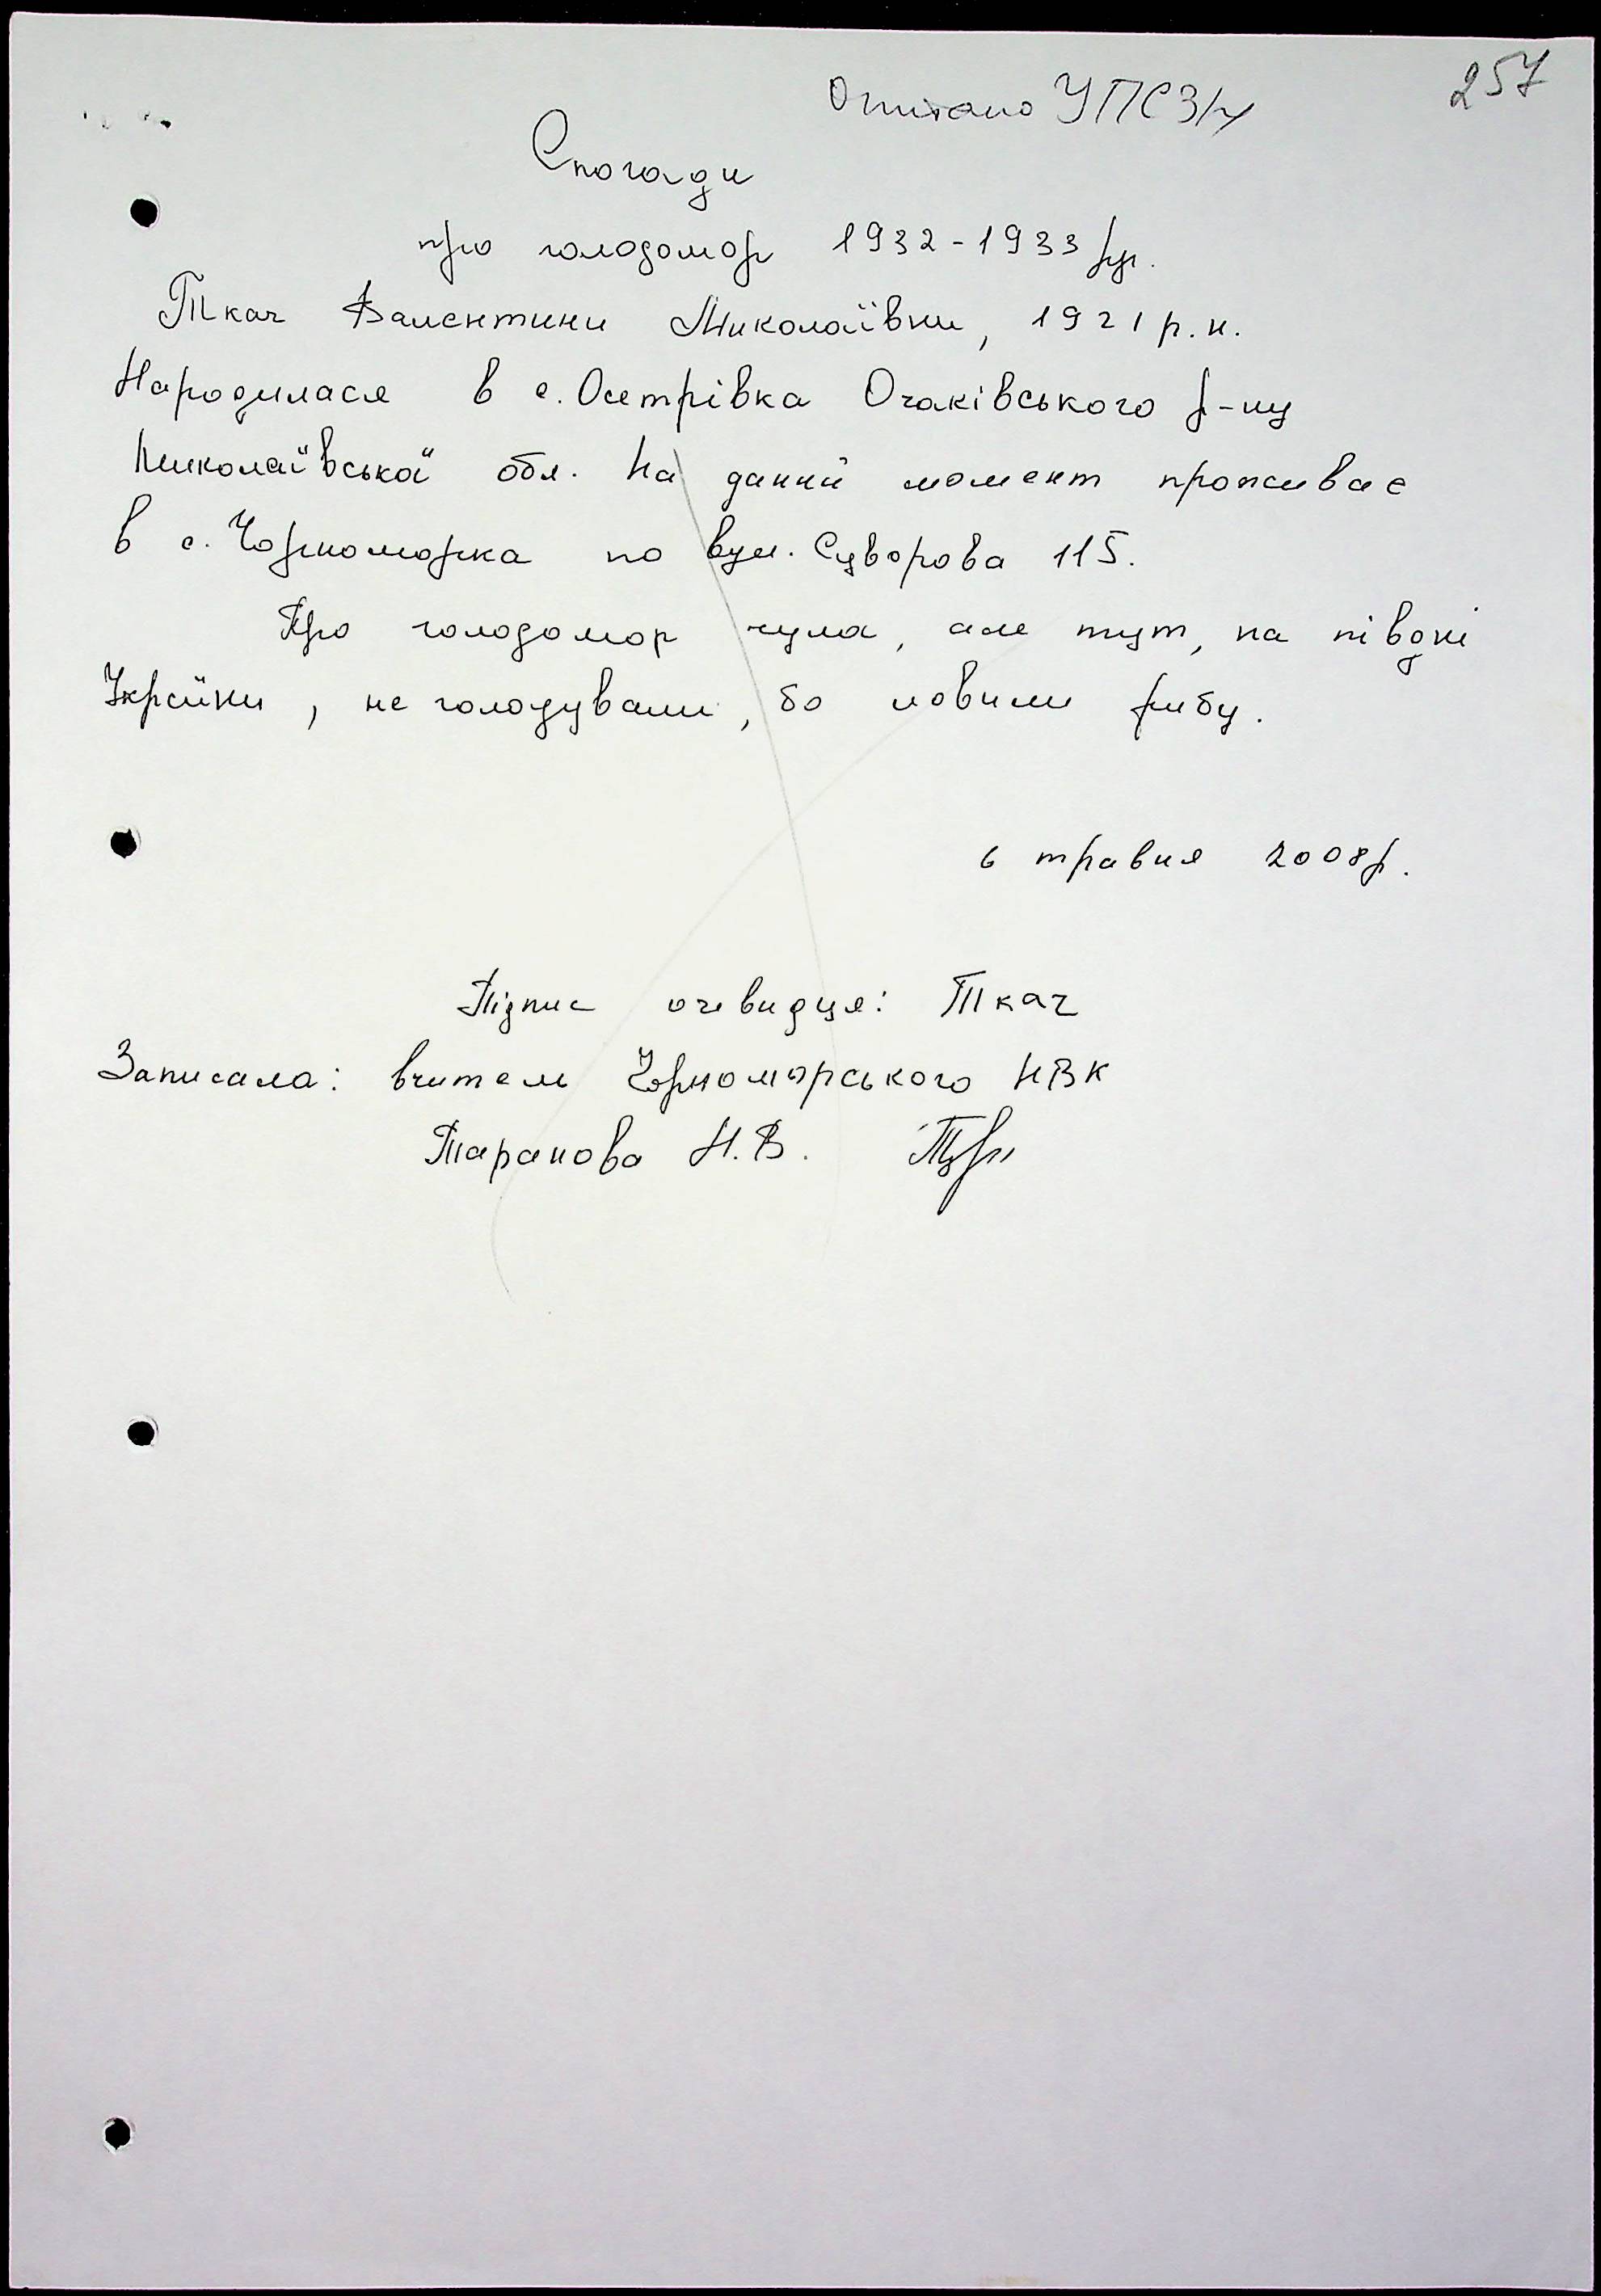 257
Опитано УПСЗН
Спогади
про голодомор 1932-1933 рр.
Ткач Валентини Миколаївни, 1921 р.н.
Народилася в с. Острівка Очаківського р-ну
Миколаївської обл. На даний момент проживає
в с. Чорноморка по вул. Суворова 115.
Про голодомор чула, але тут, на півдні
України, не голодували, бо ловили рибу.
6 травня 2008р.
Підпис очевидця: Ткач
Записала: вчитель Чорноморського НВК
Таранова Н.В.